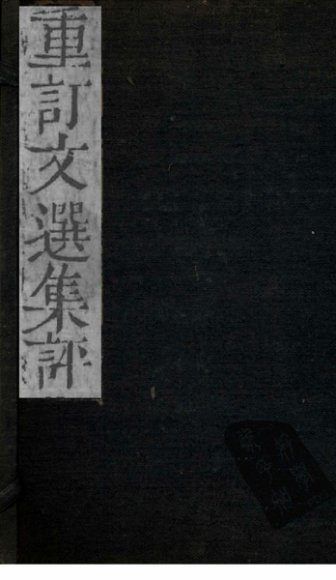 重訂文選集評